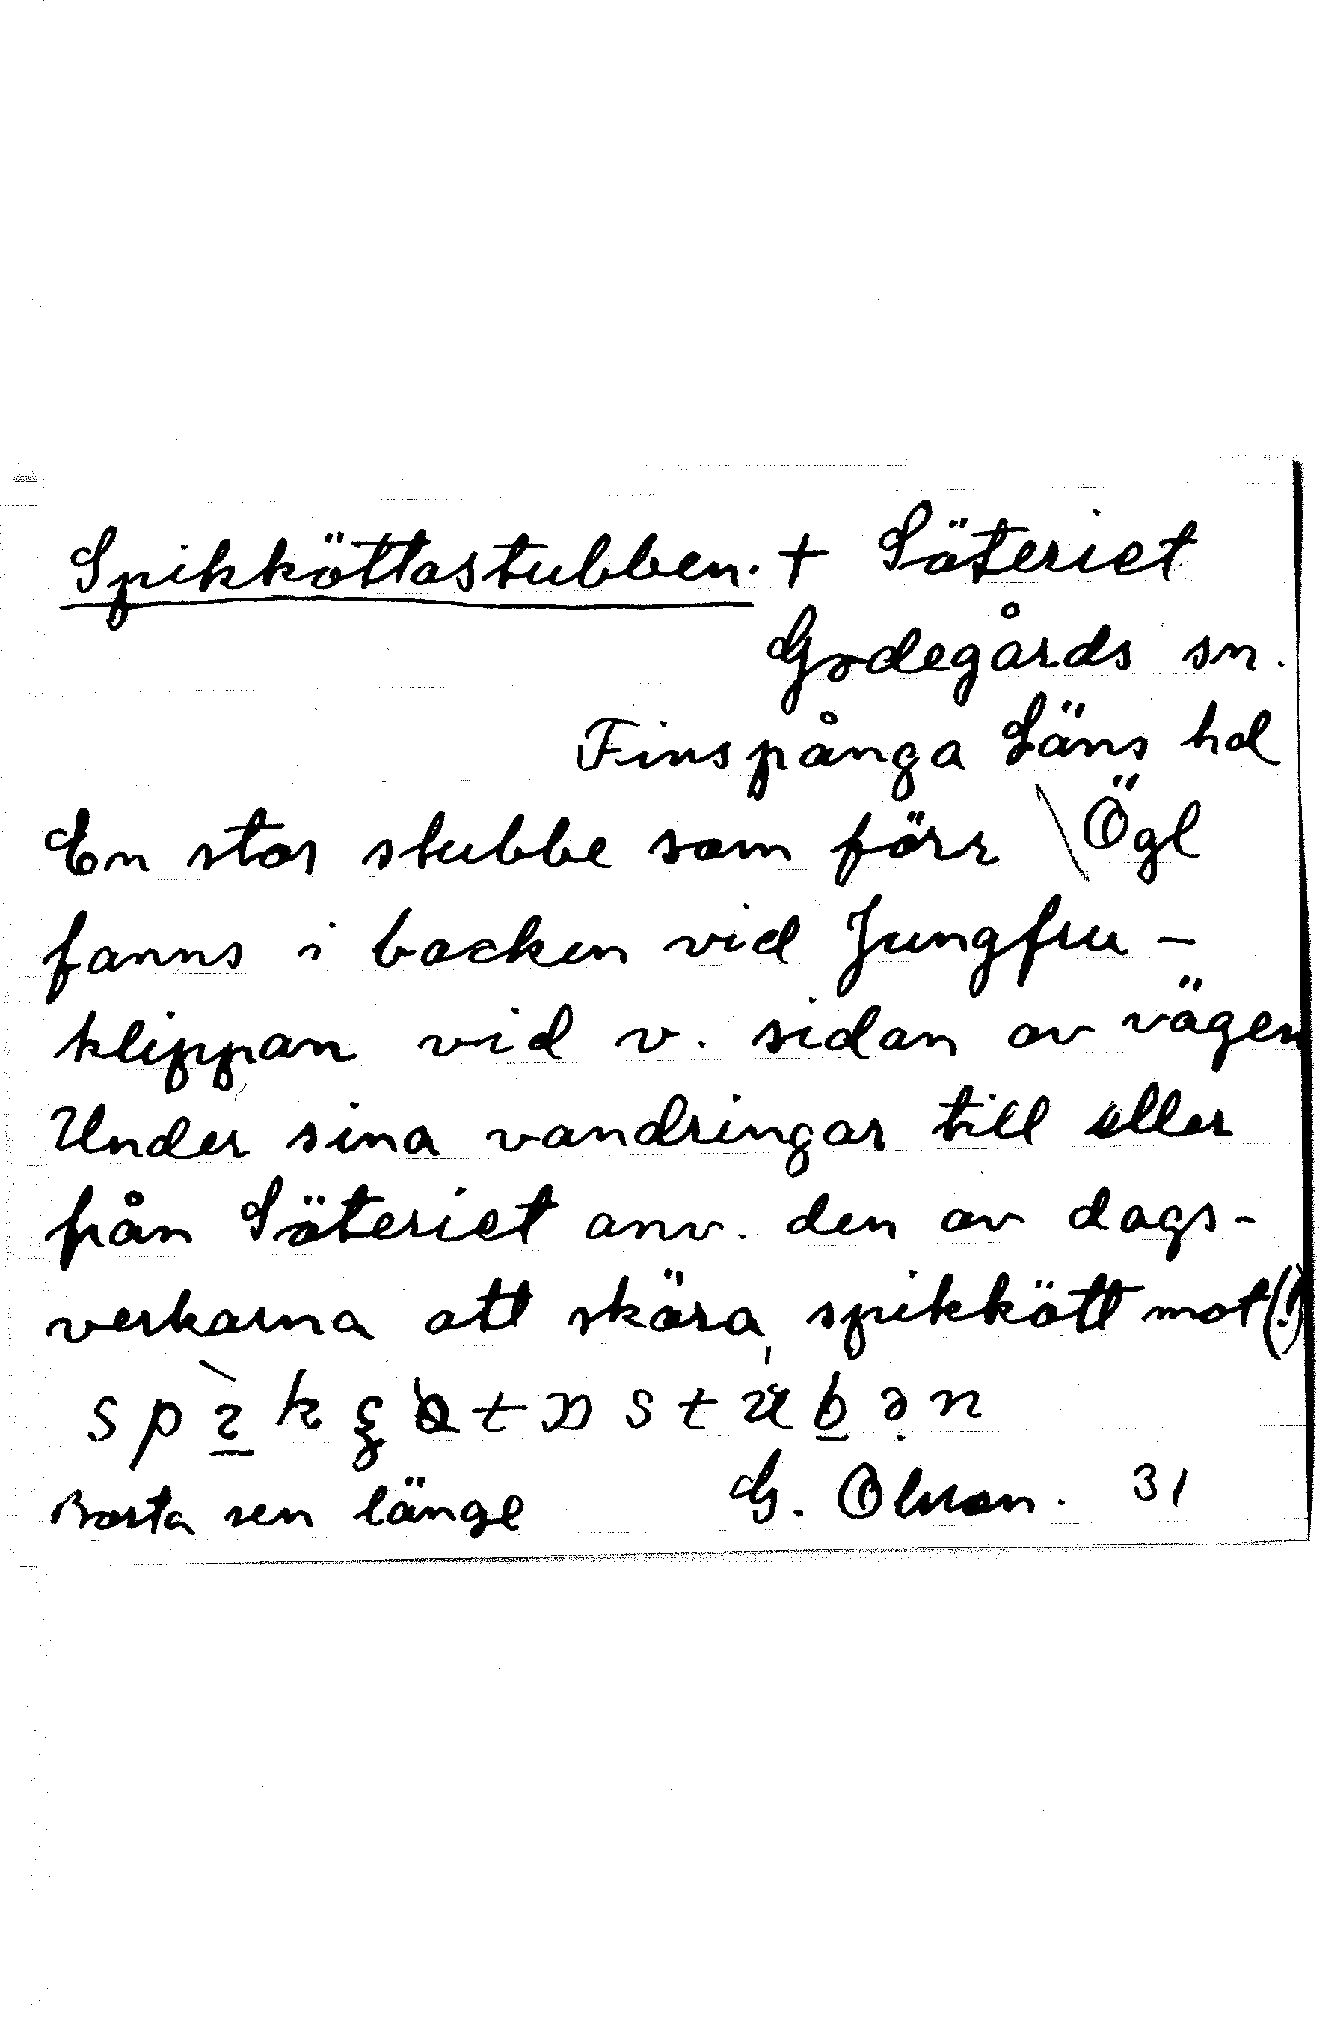 Spikköttastubben. + Säteriet
Godegårds sn.
Finspånga Läns hd
En stor stubbe som förr \ Ögl
fanns i backen vid Jungfru-
klippan vid v. sidan av vägen
Under sina vandringar till eller
från Säteriet anv. den av dags-
verkarna att skära spikkött mot(!)
Borta sen länge G. Olsson. 31